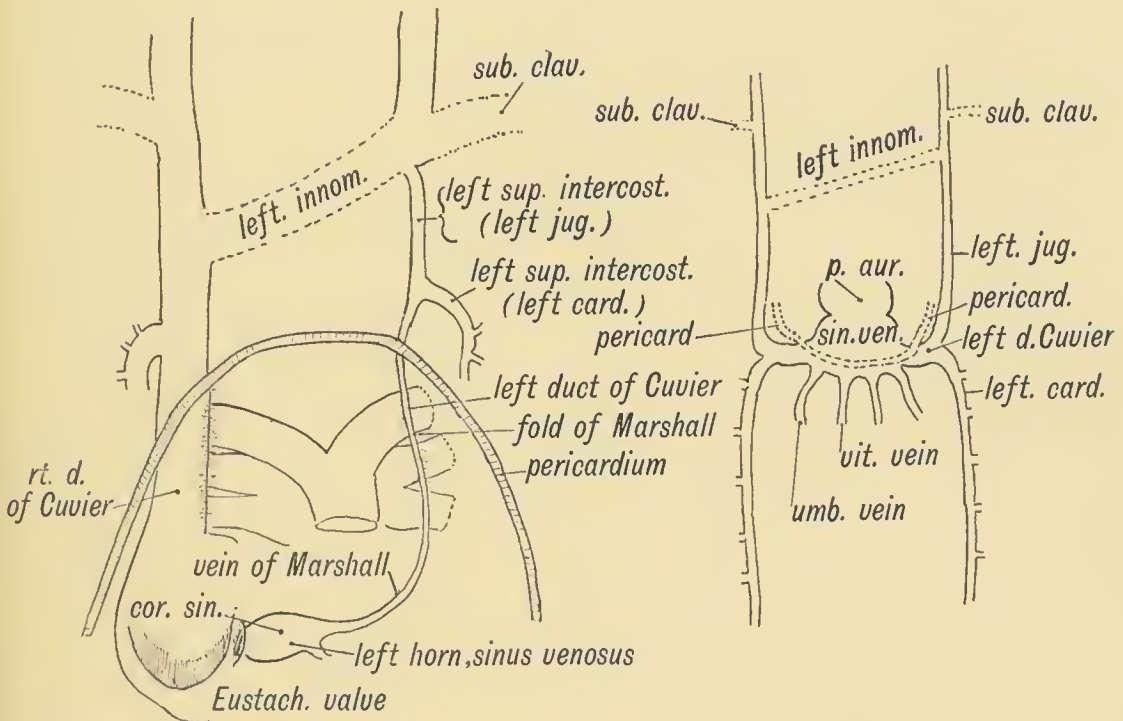 sub. clav.
left. innom.
left sup. intercost.
(left jug.)
left sup. intercost.
(left card.)
left duct of Cuvier
fold of Marshall
pericardium
rt. d.
of Cuvier
vein of Marshall
cor. sin.
left horn, sinus venosus
Eustach. valve
sub. clav.
sub. clav.
left innom.
left. jug.
p. aur.
pericard.
pericard
sin. ven.
left d. Cuvier
left. card.
vit. vein
umb. vein